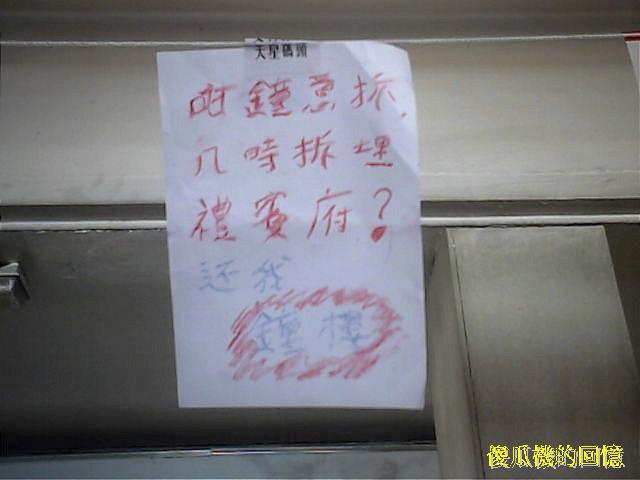 天星碼頭
咁鐘意拆,
几時拆埋
禮賓府?
还我
鐘樓
傻瓜機的回憶